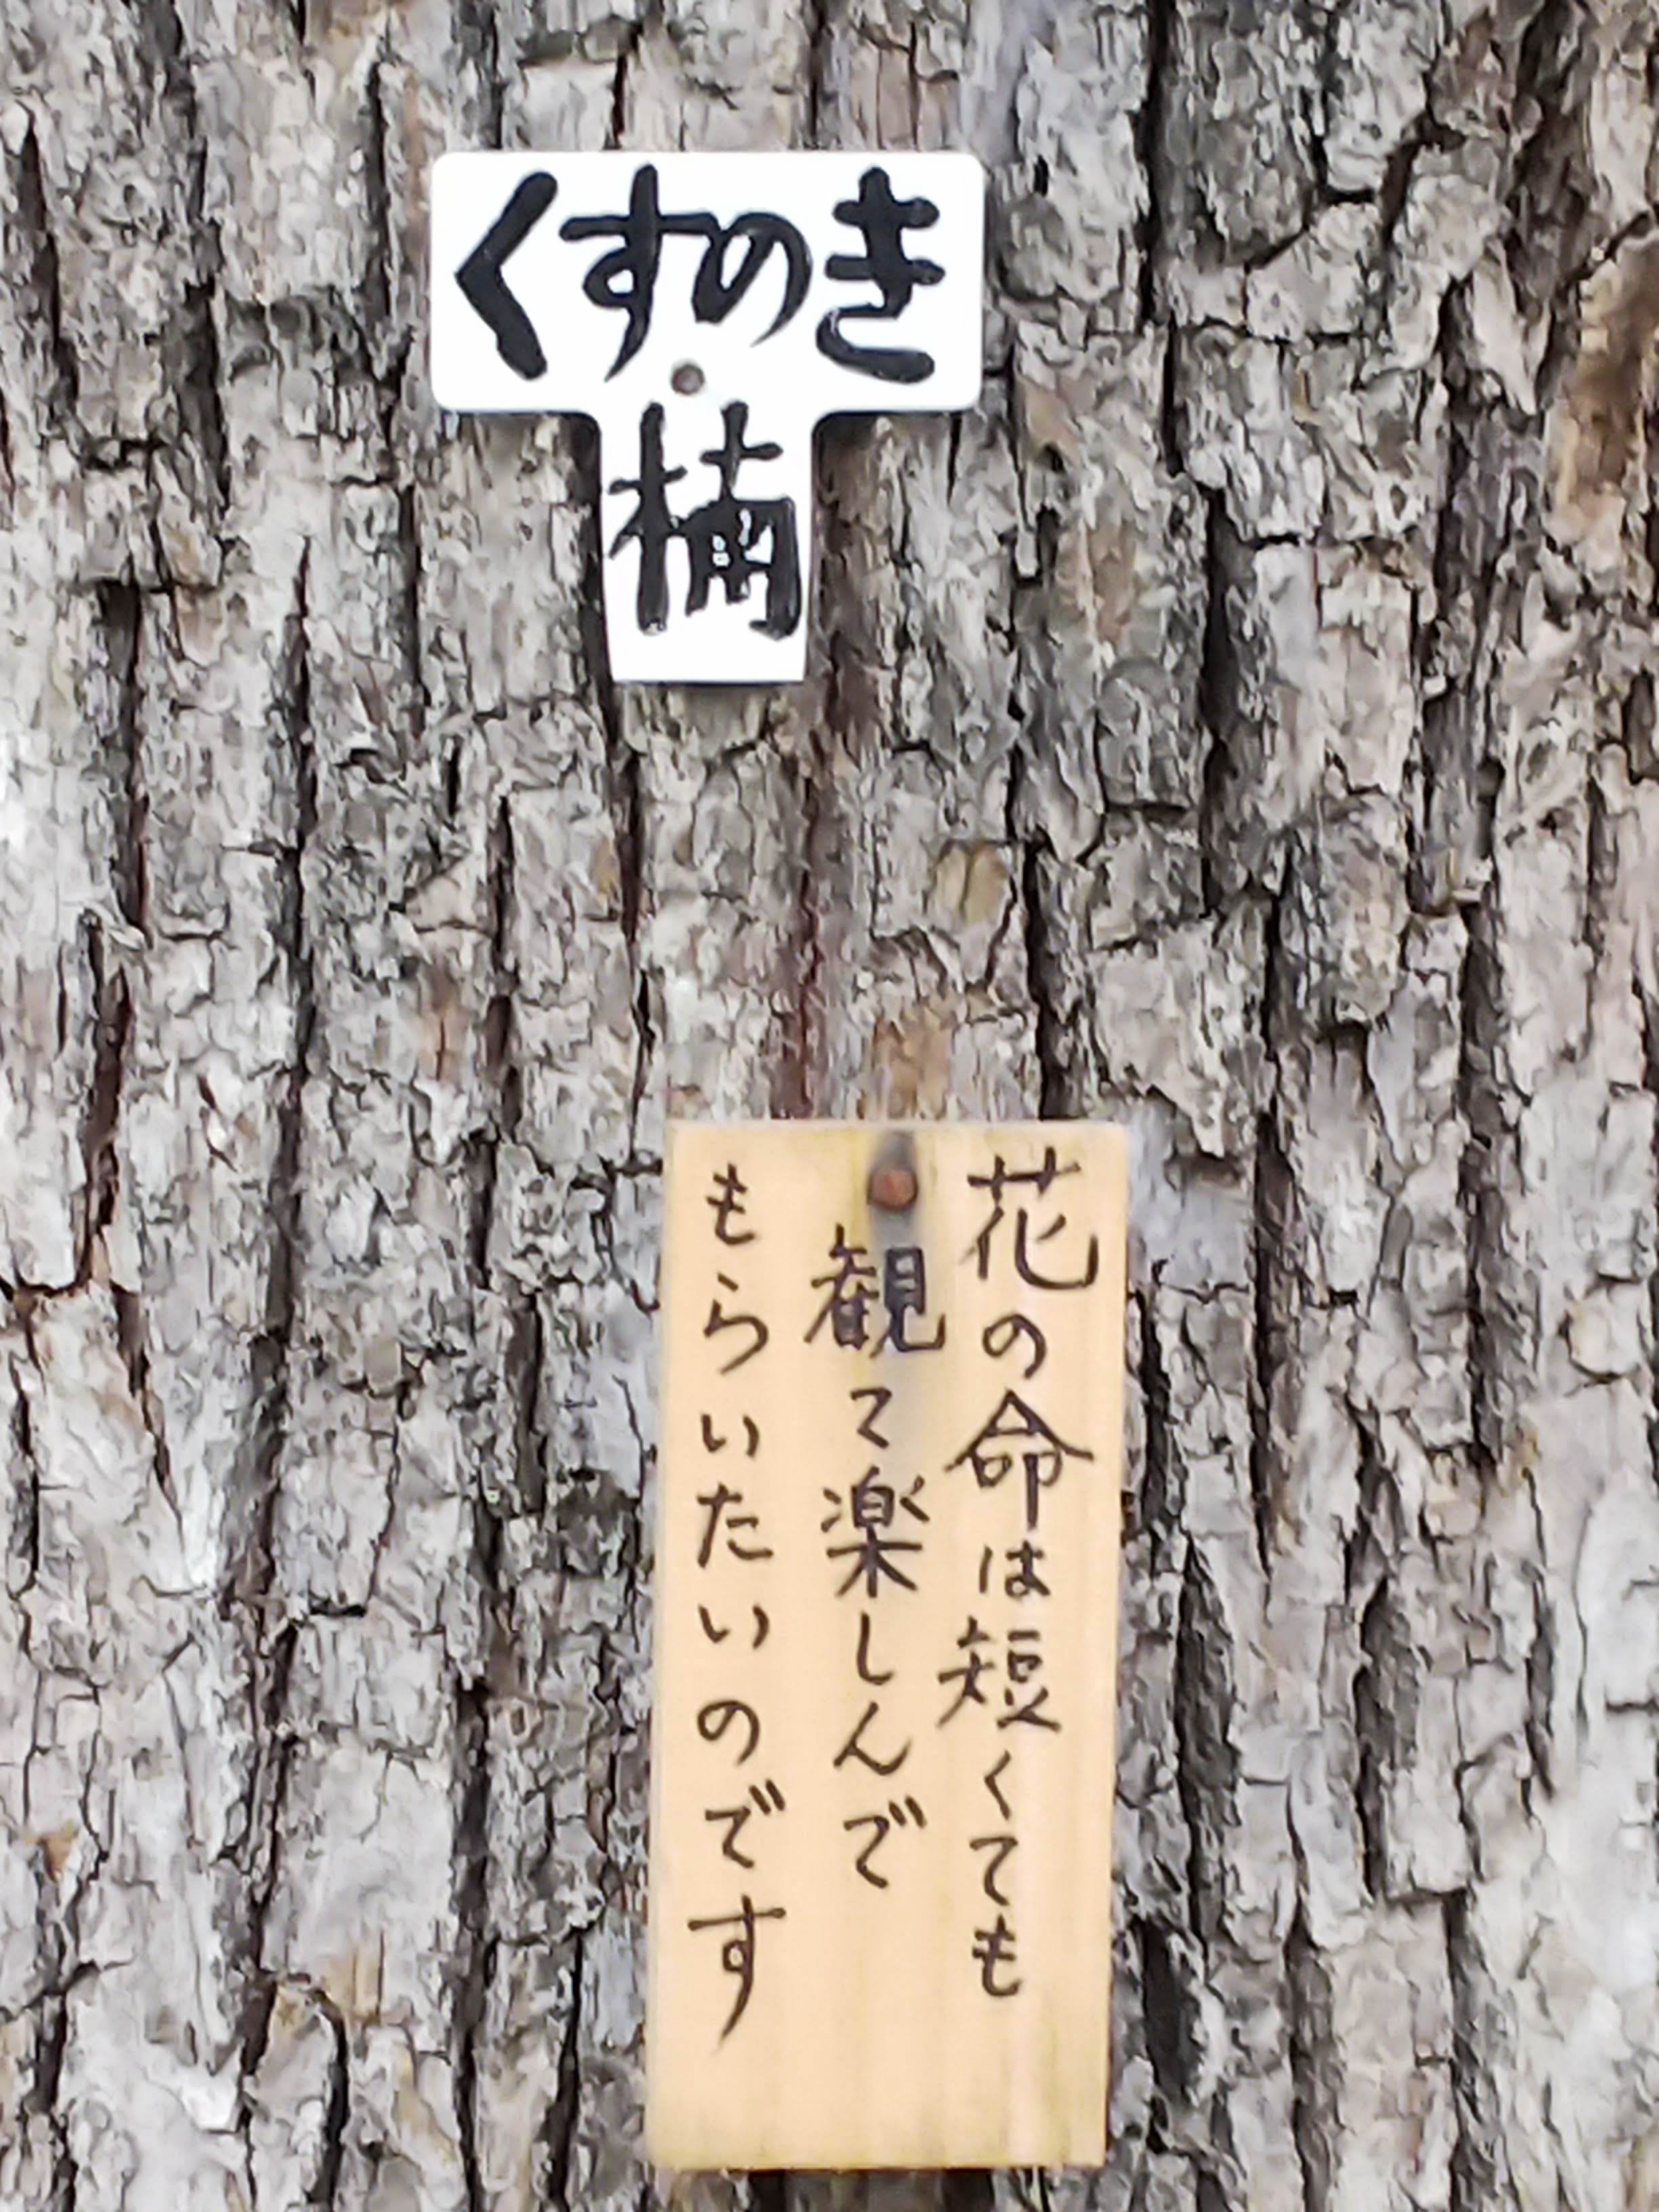 くすのき
楠
花の命は短くても
観て楽しんで
もらいたいのです